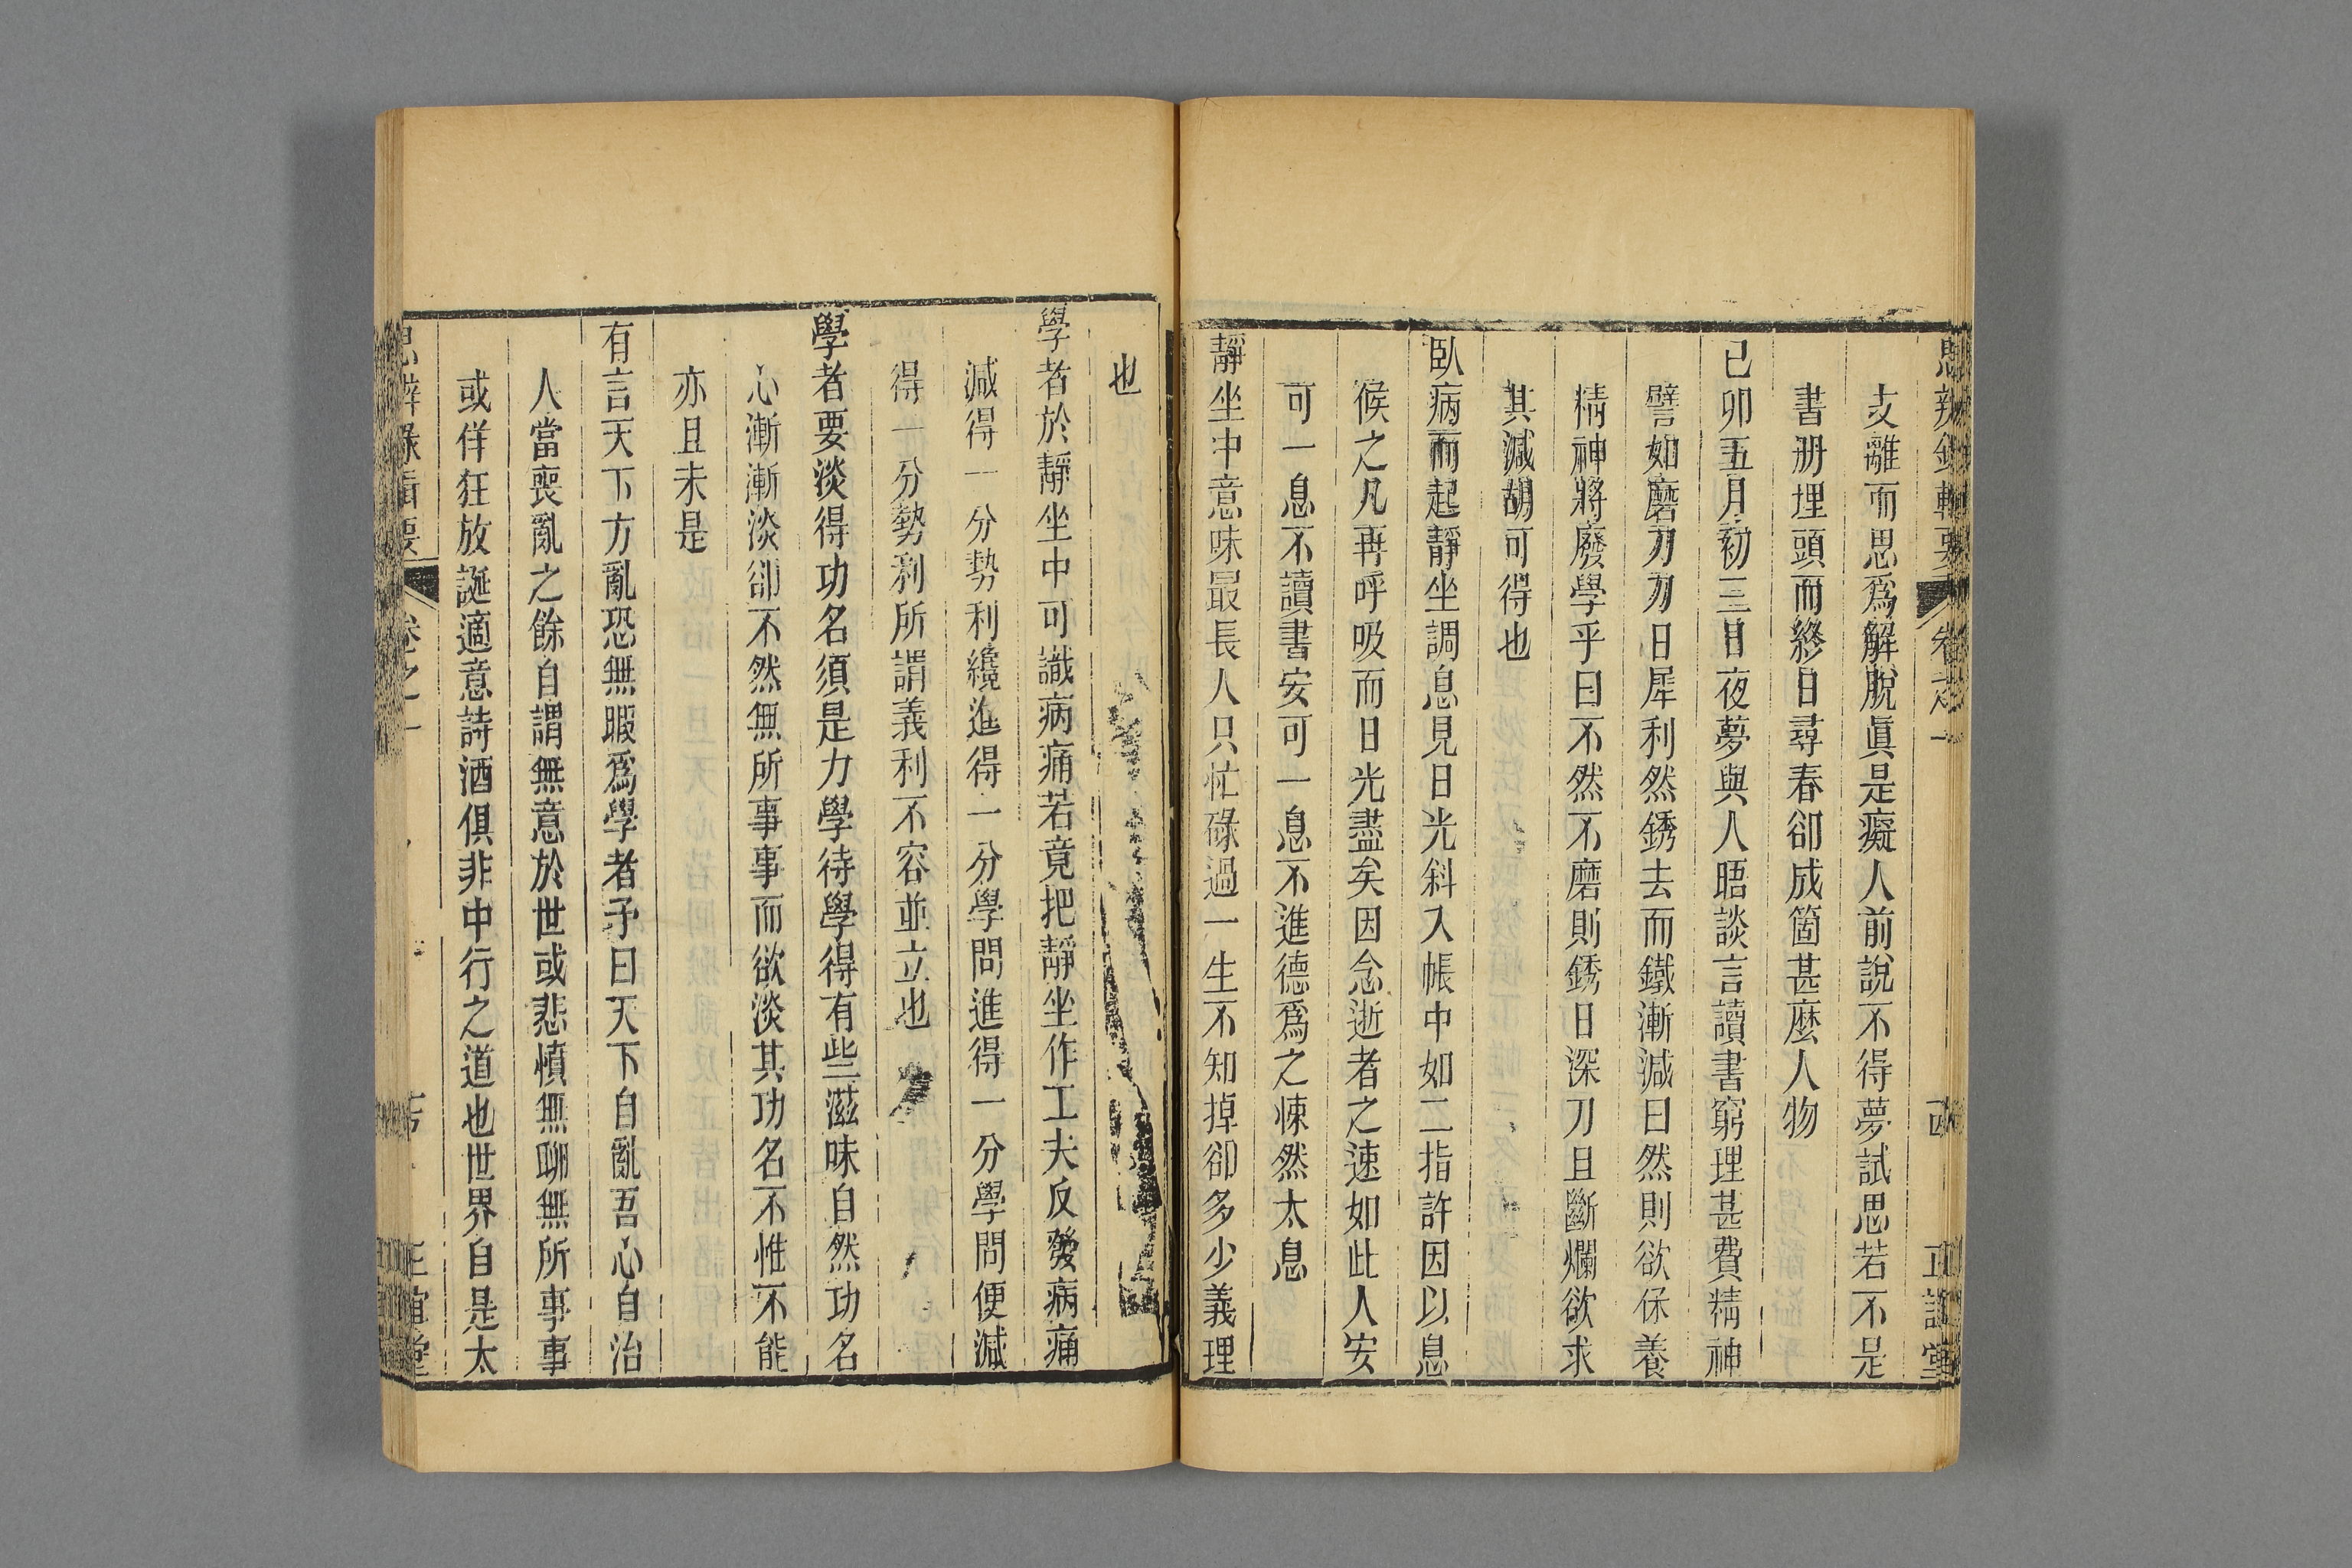 思辨錄輯要 卷之一 正誼堂
支離而思爲解脫眞是癡人前說不得夢試思若不是
書册埋頭而終日尋春卻成箇甚麼人物
己卯五月初三日夜夢與人晤談言讀書窮理甚費精神
譬如磨刀刀日犀利然銹去而鐵漸減曰然則欲保養
精神將廢學乎曰不然不磨則銹日深刀且斷爛欲求
其減胡可得也
臥病而起靜坐調息見日光斜入帳中如二指許因以息
候之凡再呼吸而日光盡矣因念逝者之速如此人安
可一息不讀書安可一息不進德爲之悚然太息
靜坐中意味最長人只忙碌過一生不知掉卻多少義理
也
學者於靜坐中可識病痛若竟把靜坐作工夫反發病痛
減得一分勢利纔進得一分學問進得一分學問便減
得一分勢利所謂義利不容並立也
學者要淡得功名須是力學待學得有些滋味自然功名
心漸漸淡卻不然無所事事而欲淡其功名不惟不能
亦且未是
有言天下方亂恐無暇爲學者予曰天下自亂吾心自治
人當喪亂之餘自謂無意於世或悲憤無聊無所事事
或佯狂放誕適意詩酒俱非中行之道也世界自是太
思辨錄輯要 卷之一 正誼堂